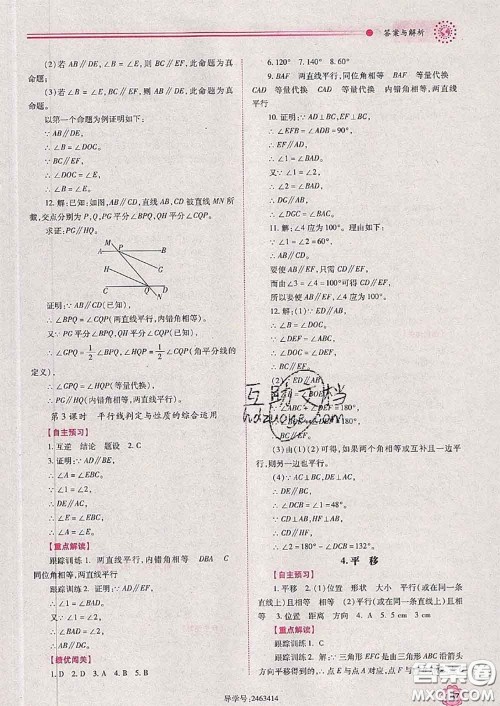 答案与解析
(2)若 AB∥DE,∠B=∠E,则 BC∥EF,此命题为真
命题;
(3)若∠B=∠E,BC∥EF,则 AB∥DE,此命题为真
命题.
以第一个命题为例证明如下:
∵AB∥DE,
∴∠B=∠DOC.
∵BC∥EF,
∴∠DOC=∠E,
∴∠B=∠E.
12. 解:已知:如图,AB∥CD,直线 AB,CD 被直线 MN 所
截,交点分别为 P,Q,PG 平分∠BPQ,QH 平分∠CQP,
求证:PG∥HQ.
M
P
A
B
H
G
C
Q
D
N
证明:∵AB∥CD(已知),
∴∠BPQ=∠CQP(两直线平行,内错角相等).
又∵PG 平分∠BPQ,QH 平分∠CQP(已知),
∴∠GPQ=1/2∠BPQ,∠HQP=1/2∠CQP(角平分线的
定义),
∴∠GPQ=∠HQP(等量代换),
∴PG∥HQ(内错角相等,两直线平行).
第3课时 平行线判定与性质的综合运用
【自主预习】
1. 互逆 结论 题设 2. C
3. 证明:∵AD∥BE,
∴∠A=∠EBC.
∵∠A=∠E,
∴∠E=∠EBC,
∴DE∥AC,
∴∠E=∠EBC,
∴∠A=∠E.
【重点解读】
跟踪训练 1. 两直线平行,内错角相等 DBA C
同位角相等,两直线平行
跟踪训练 2. 证明:∵AC∥DE,
∴∠ACD=∠D.
∵∠D=∠A,
∴∠ACD=∠A,
∴AB∥CD.
【绩优闯关】
1. A 2. D 3. D 4. B 5. B
6. 120° 7. 140° 8. 60°
9. BAF 两直线平行,同位角相等 BAF 等量代换
CAD 等量代换 CAD 等量代换 内错角相等,两直线
平行
10. 证明:∵AD⊥BC,EF⊥BC,
∴∠EFB=∠ADB=90°,
∴EF∥AD,
∴∠1=∠BAD.
又∵∠1=∠2,
∴∠2=∠BAD,
∴DG∥BA,
∴∠DGC=∠BAC.
11. 解:∠4 应为 100°. 理由如下:
∵∠1=∠2,
∴AB∥CD.
要使 AB∥EF,只需 CD∥EF,
而由∠3+∠4=180°,得 CD∥EF,
所以要使 AB∥EF,∠4 应为 100°.
12. 解:(1)∵ED∥AB,
∴∠2=∠DOE.
又∵∠1=∠2,
∴∠1=∠DOE,
∴BC∥EF.
∵ED∥AB,
互助文档
hdzuone.com
=180°,
=180°.
(3)由(1)(2)可得,如果两个角相等或互补且一边平
行,则另一边也平行.
(4)∵AC⊥BC,DE⊥AC,
∴DE∥BC,
∴∠DCB=∠1=48°.
∵CD⊥AB,HF⊥AB,
∴CD∥HF,
∴∠2=180°-∠DCB=132°.
4. 平 移
【自主预习】
1. 平移 2. (1)位置 形状 大小 平行(或在同一条
直线上)且相等 相等 (2)平行(或在同一条直线上)
且相等 3. 位置 距离 方向 4. A 5. 5 cm 3 cm
【重点解读】
跟踪训练 1. 解:∵三角形 EFG 是由三角形 ABC 沿箭头
方向平移得到的,∴点 E 与点 A 对应,点 F 与点
导学号:2463414
答案圈
MXQE.COM